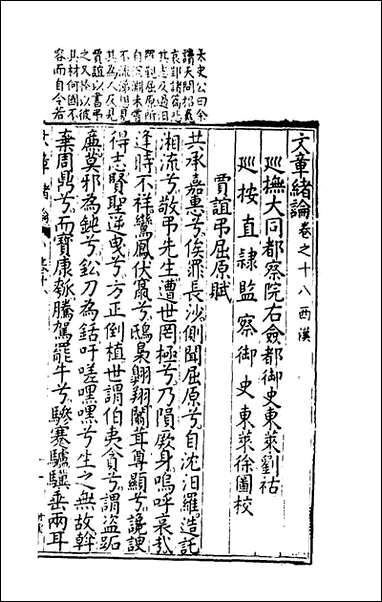 文章緒論卷之十八西漢
廵撫大同都察院右僉都御史東萊劉祜
廵按直隷監察御史東萊徐圖校
賈誼弔屈原賦
共承嘉惠兮俟罪長沙側聞屈原兮自沈汨羅造託
湘流兮敬弔先生遭世罔極兮乃隕厥身嗚呼哀哉
逢時不祥鸞鳳伏竄兮鴟梟翱翔闒茸尊顯兮讒諛
得志賢聖逆曳兮方正倒植世謂伯夷貪兮謂盗跖
廉莫邪為鈍兮鈆刀為銛吁嗟嘿嘿兮生之無故斡
棄周鼎兮而寶康瓠騰駕罷牛兮驂蹇驢驥垂兩耳
太史公曰余
讀天問招䰟
哀郢
其志及過
觀屈原所
自沉淵未甞
不流涕想見
其為人及見
賈誼以書弔
之又怪以彼
其材何國不
容而自令若